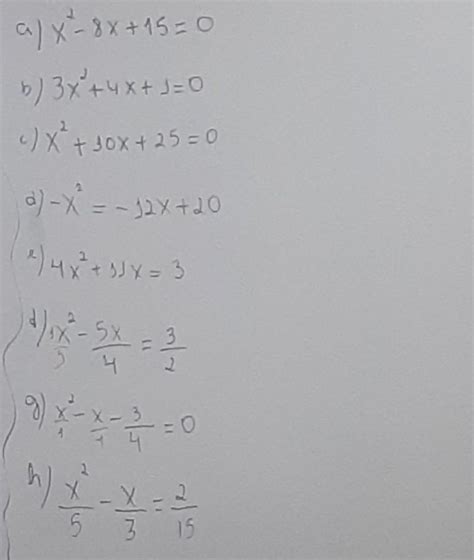 a) x² - 8x + 15 = 0
b) 3x² + 4x + 1 = 0
c) x² + 10x + 25 = 0
d) -x² = -12x + 20
e) 4x² + 11x = 3
f) 1x²/5 - 5x/4 = 3/2
g) x²/1 - x/1 - 3/4 = 0
h) x²/5 - x/3 = 2/15